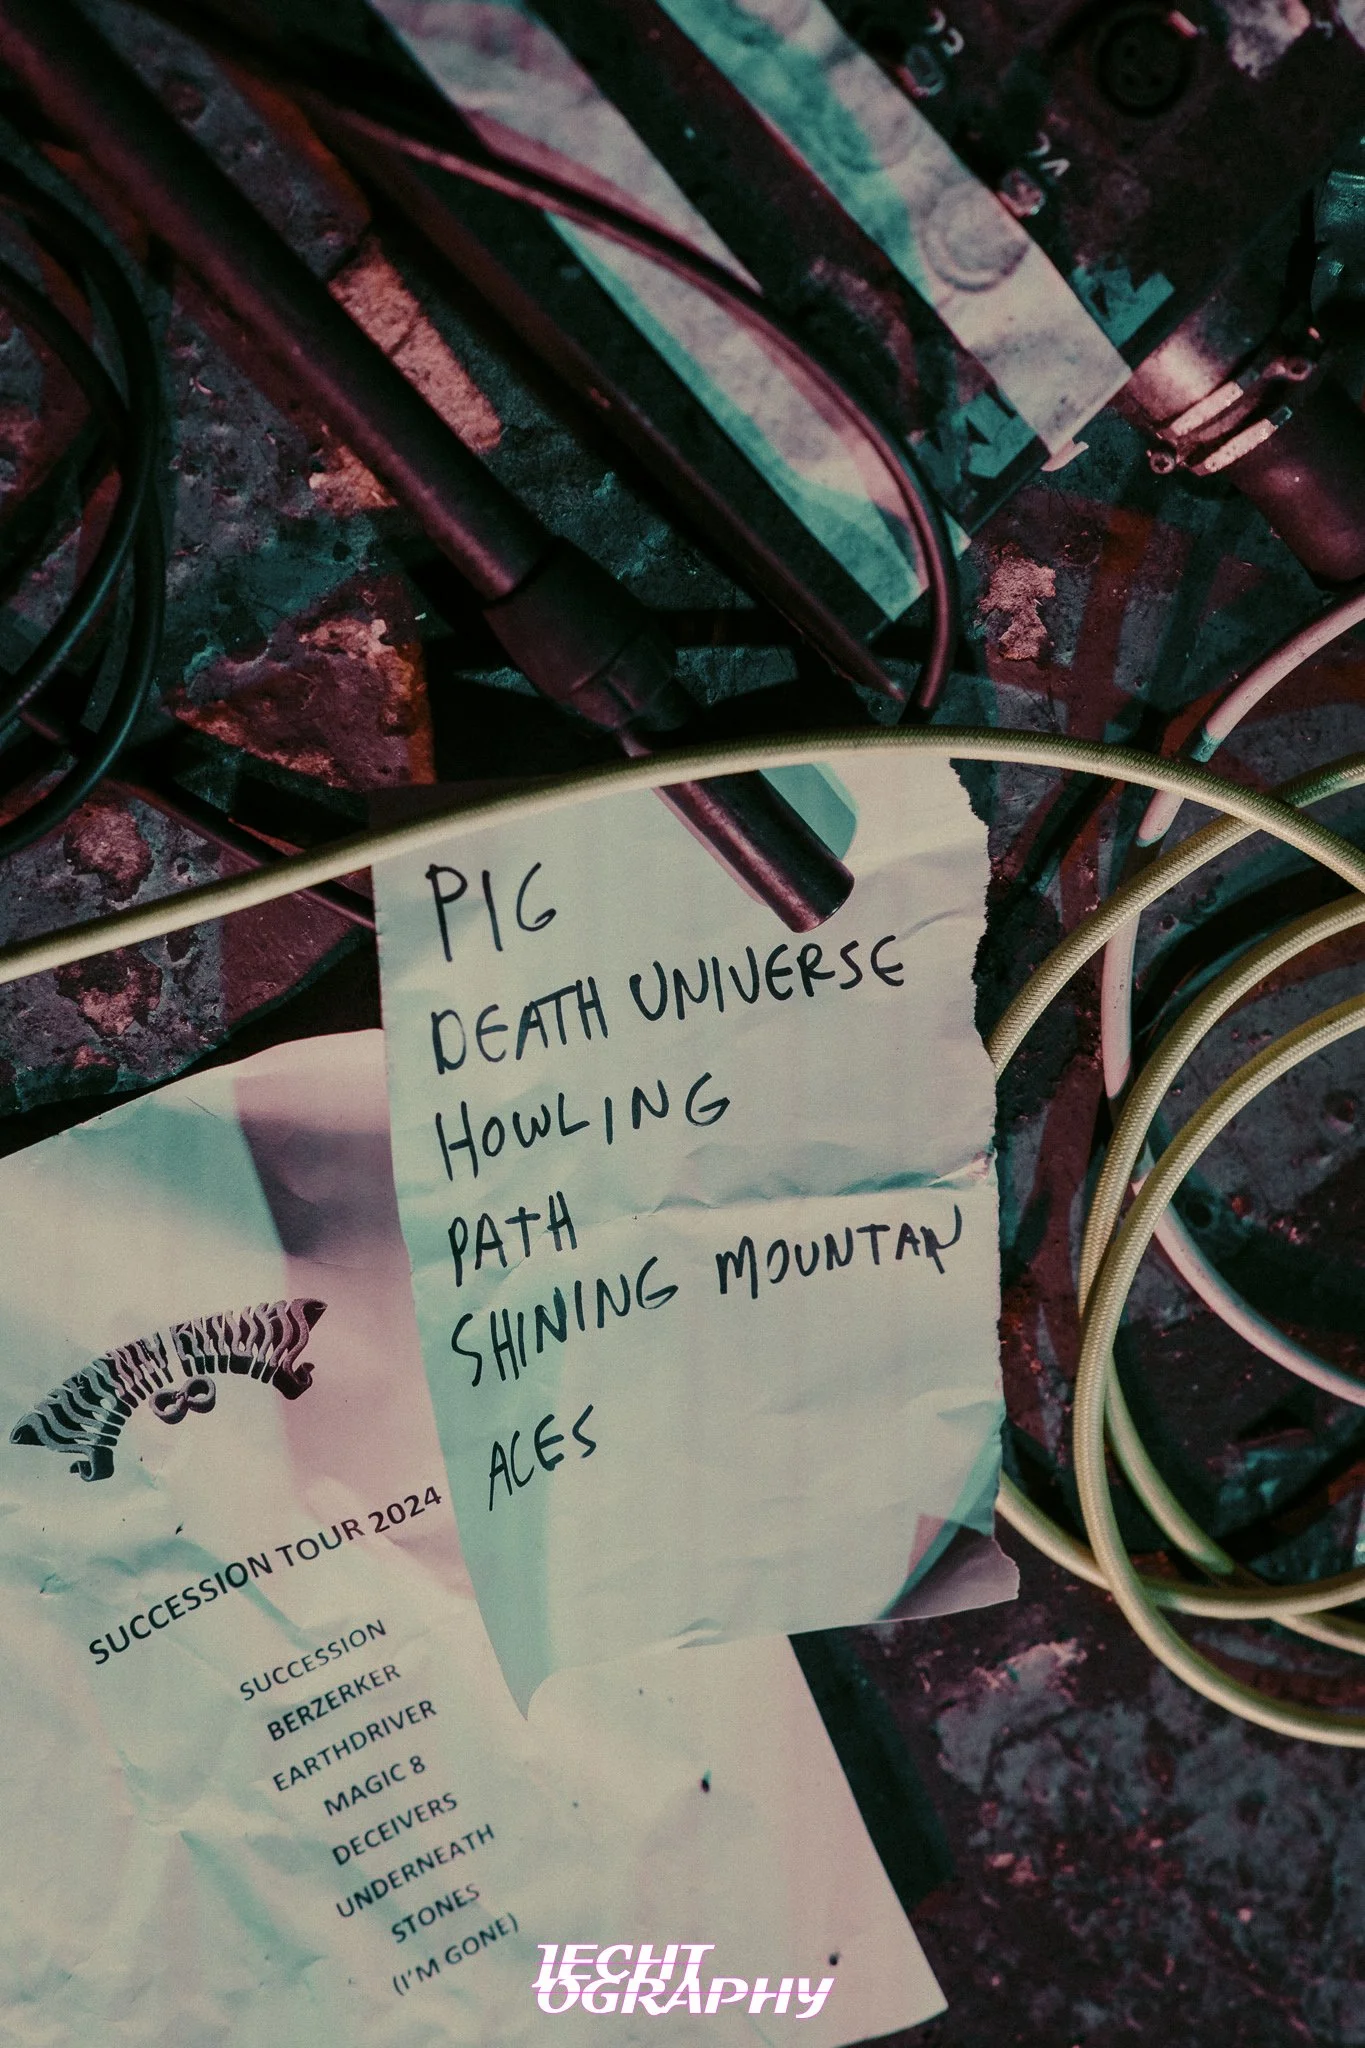 23
24
PIG
DEATH UNIVERSE
HOWLING
PATH
SHINING MOUNTAN
ACES
SUCCESSION TOUR 2024
SUCCESSION
BERZERKER
EARTHDRIVER
MAGIC 8
DECEIVERS
UNDERNEATH
STONES
(I'M GONE)
1ECHT
OGRAPHY